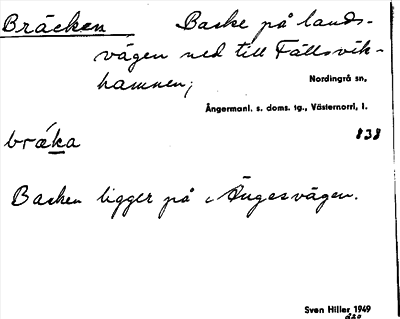 Bräcken Backe på lands-
vägen ned till Fällsvik-
hamnen;
Nordingrå sn,
Ångermanl. s. doms. tg., Västernorrl. l.
bräka 838
Backen ligger på Ängesvägen.
Sven Hiller 1949